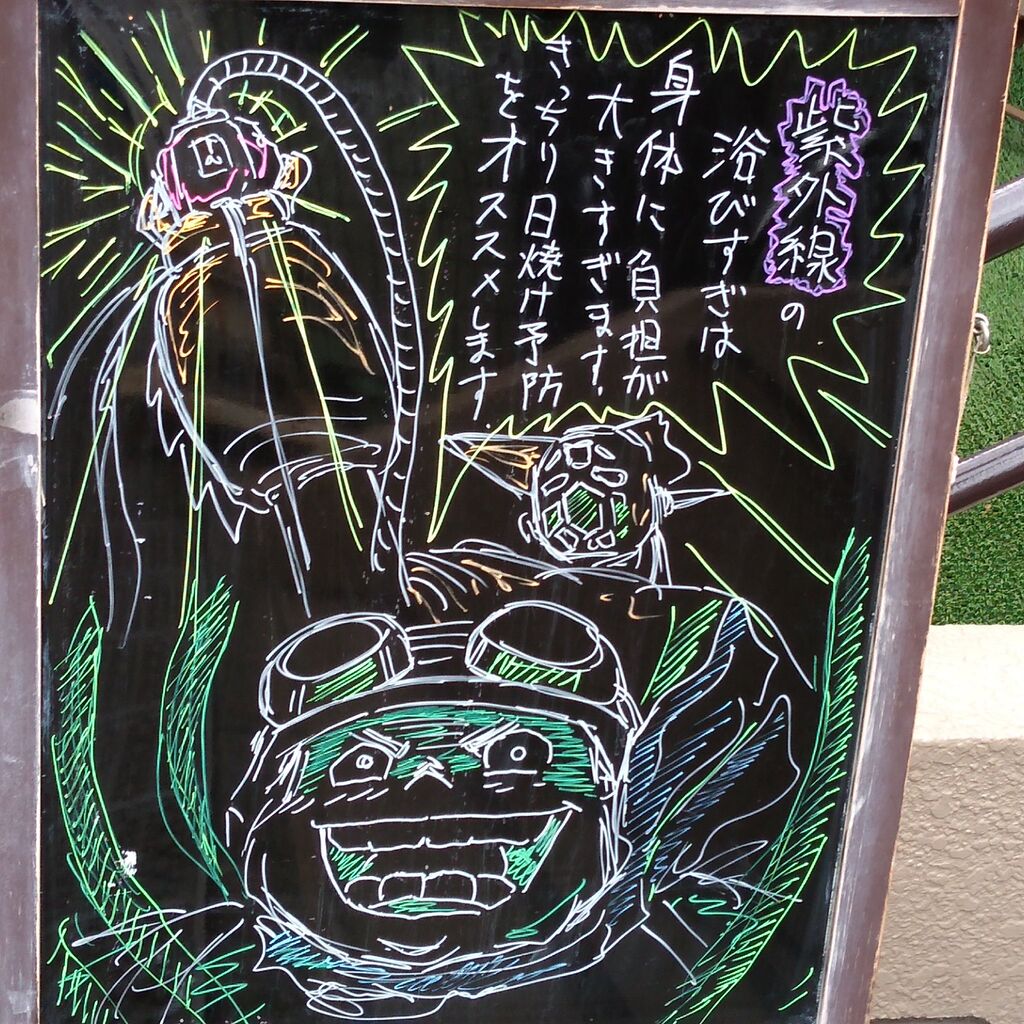 紫外線の
浴びすぎは
身体に負担が
大きすぎます。
きっちり日焼け予防
をオススメします